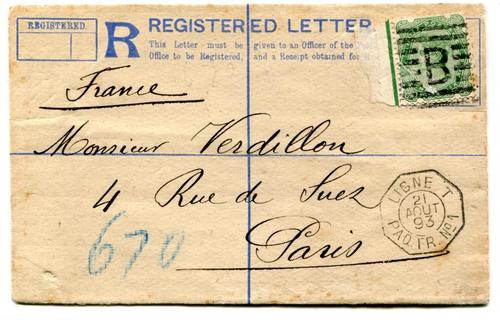 REGISTERED.
R
REGISTERED LETTER
This Letter must be given to an Officer of the
Office to be Registered, and a Receipt obtained for
B
France
Monsieur Verdillon
4 Rue de Suez
Paris
670
LIGNE T
21
AOUT
93
PAQ. FR. Nº 1